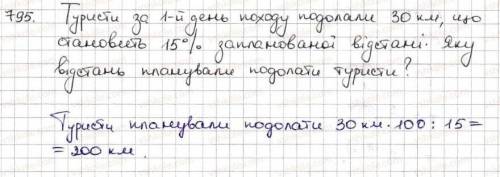 795. Туристи за 1-й день походу подолали 30 км, що
становить 15% запланованої відстані. Яку
відстань планували подолати туристи?
Туристи планували подолати 30 км · 100 : 15 =
= 200 км.